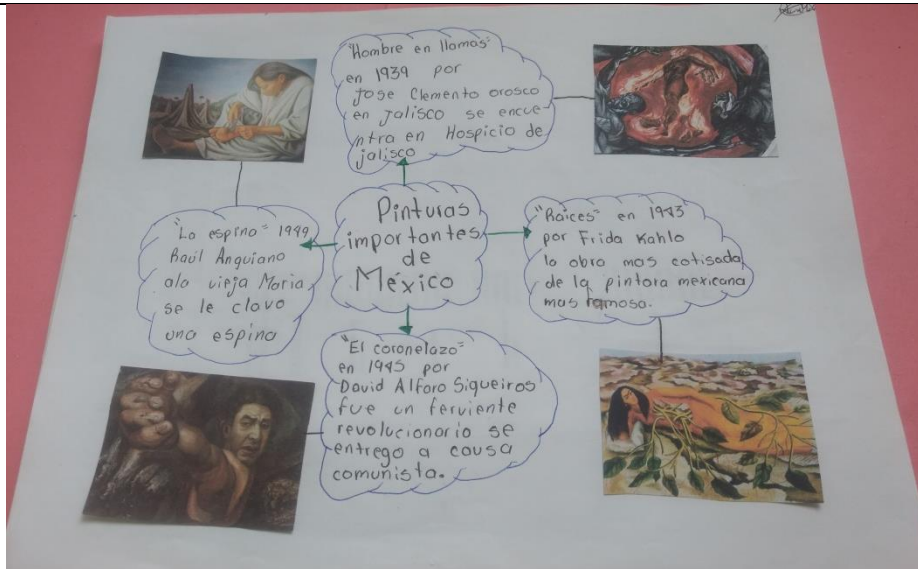 "Hombre en llamas"
en 1939 por
Jose Clemento orosco
en Jalisco se encue-
ntra en Hospicio de
jalisco
Pinturas
importantes
de
México
"La espina" 1949
Raúl Anguiano
ala vieja Maria
se le clavo
una espina
"Raices" en 1943
por Frida Kahlo
la obra mas cotisada
de la pintora mexicana
mas famosa.
"El coronelazo"
en 1945 por
David Alfaro Siqueiros
fue un ferviente
revolucionario se
entrego a causa
comunista.